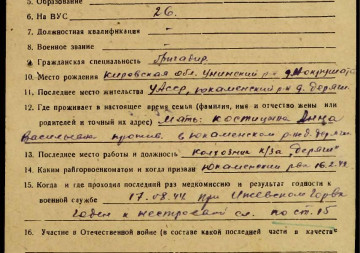 5. Образование
6. На ВУС 26.
7. Должностная квалификация –
8. Военное звание –
9. Гражданская специальность бригадир.
10. Место рождения Кировская обл. Унинский р-н д.
11. Последнее место жительства УАССР, Юкаменский р-н д.
12. Где проживает в настоящее время семья (фамилия, имя и отчество жены или
родителей и точный их адрес) Мать: Костицына Анна
Васильевна прожив. в Юкаменском р-не д.
13. Последнее место работы и должность Колхозник к/за
14. Каким райгорвоенкоматом и когда призван Юкаменским рвк 16.2.44
15. Когда и где проходил последний раз медкомиссию и результат годности к
военной службе 17.08.44 при Ижевском Горвк
Годен к нестроевой сл. по ст. 15
16. Участие в Отечественной войне (в составе какой последней части и в качеств